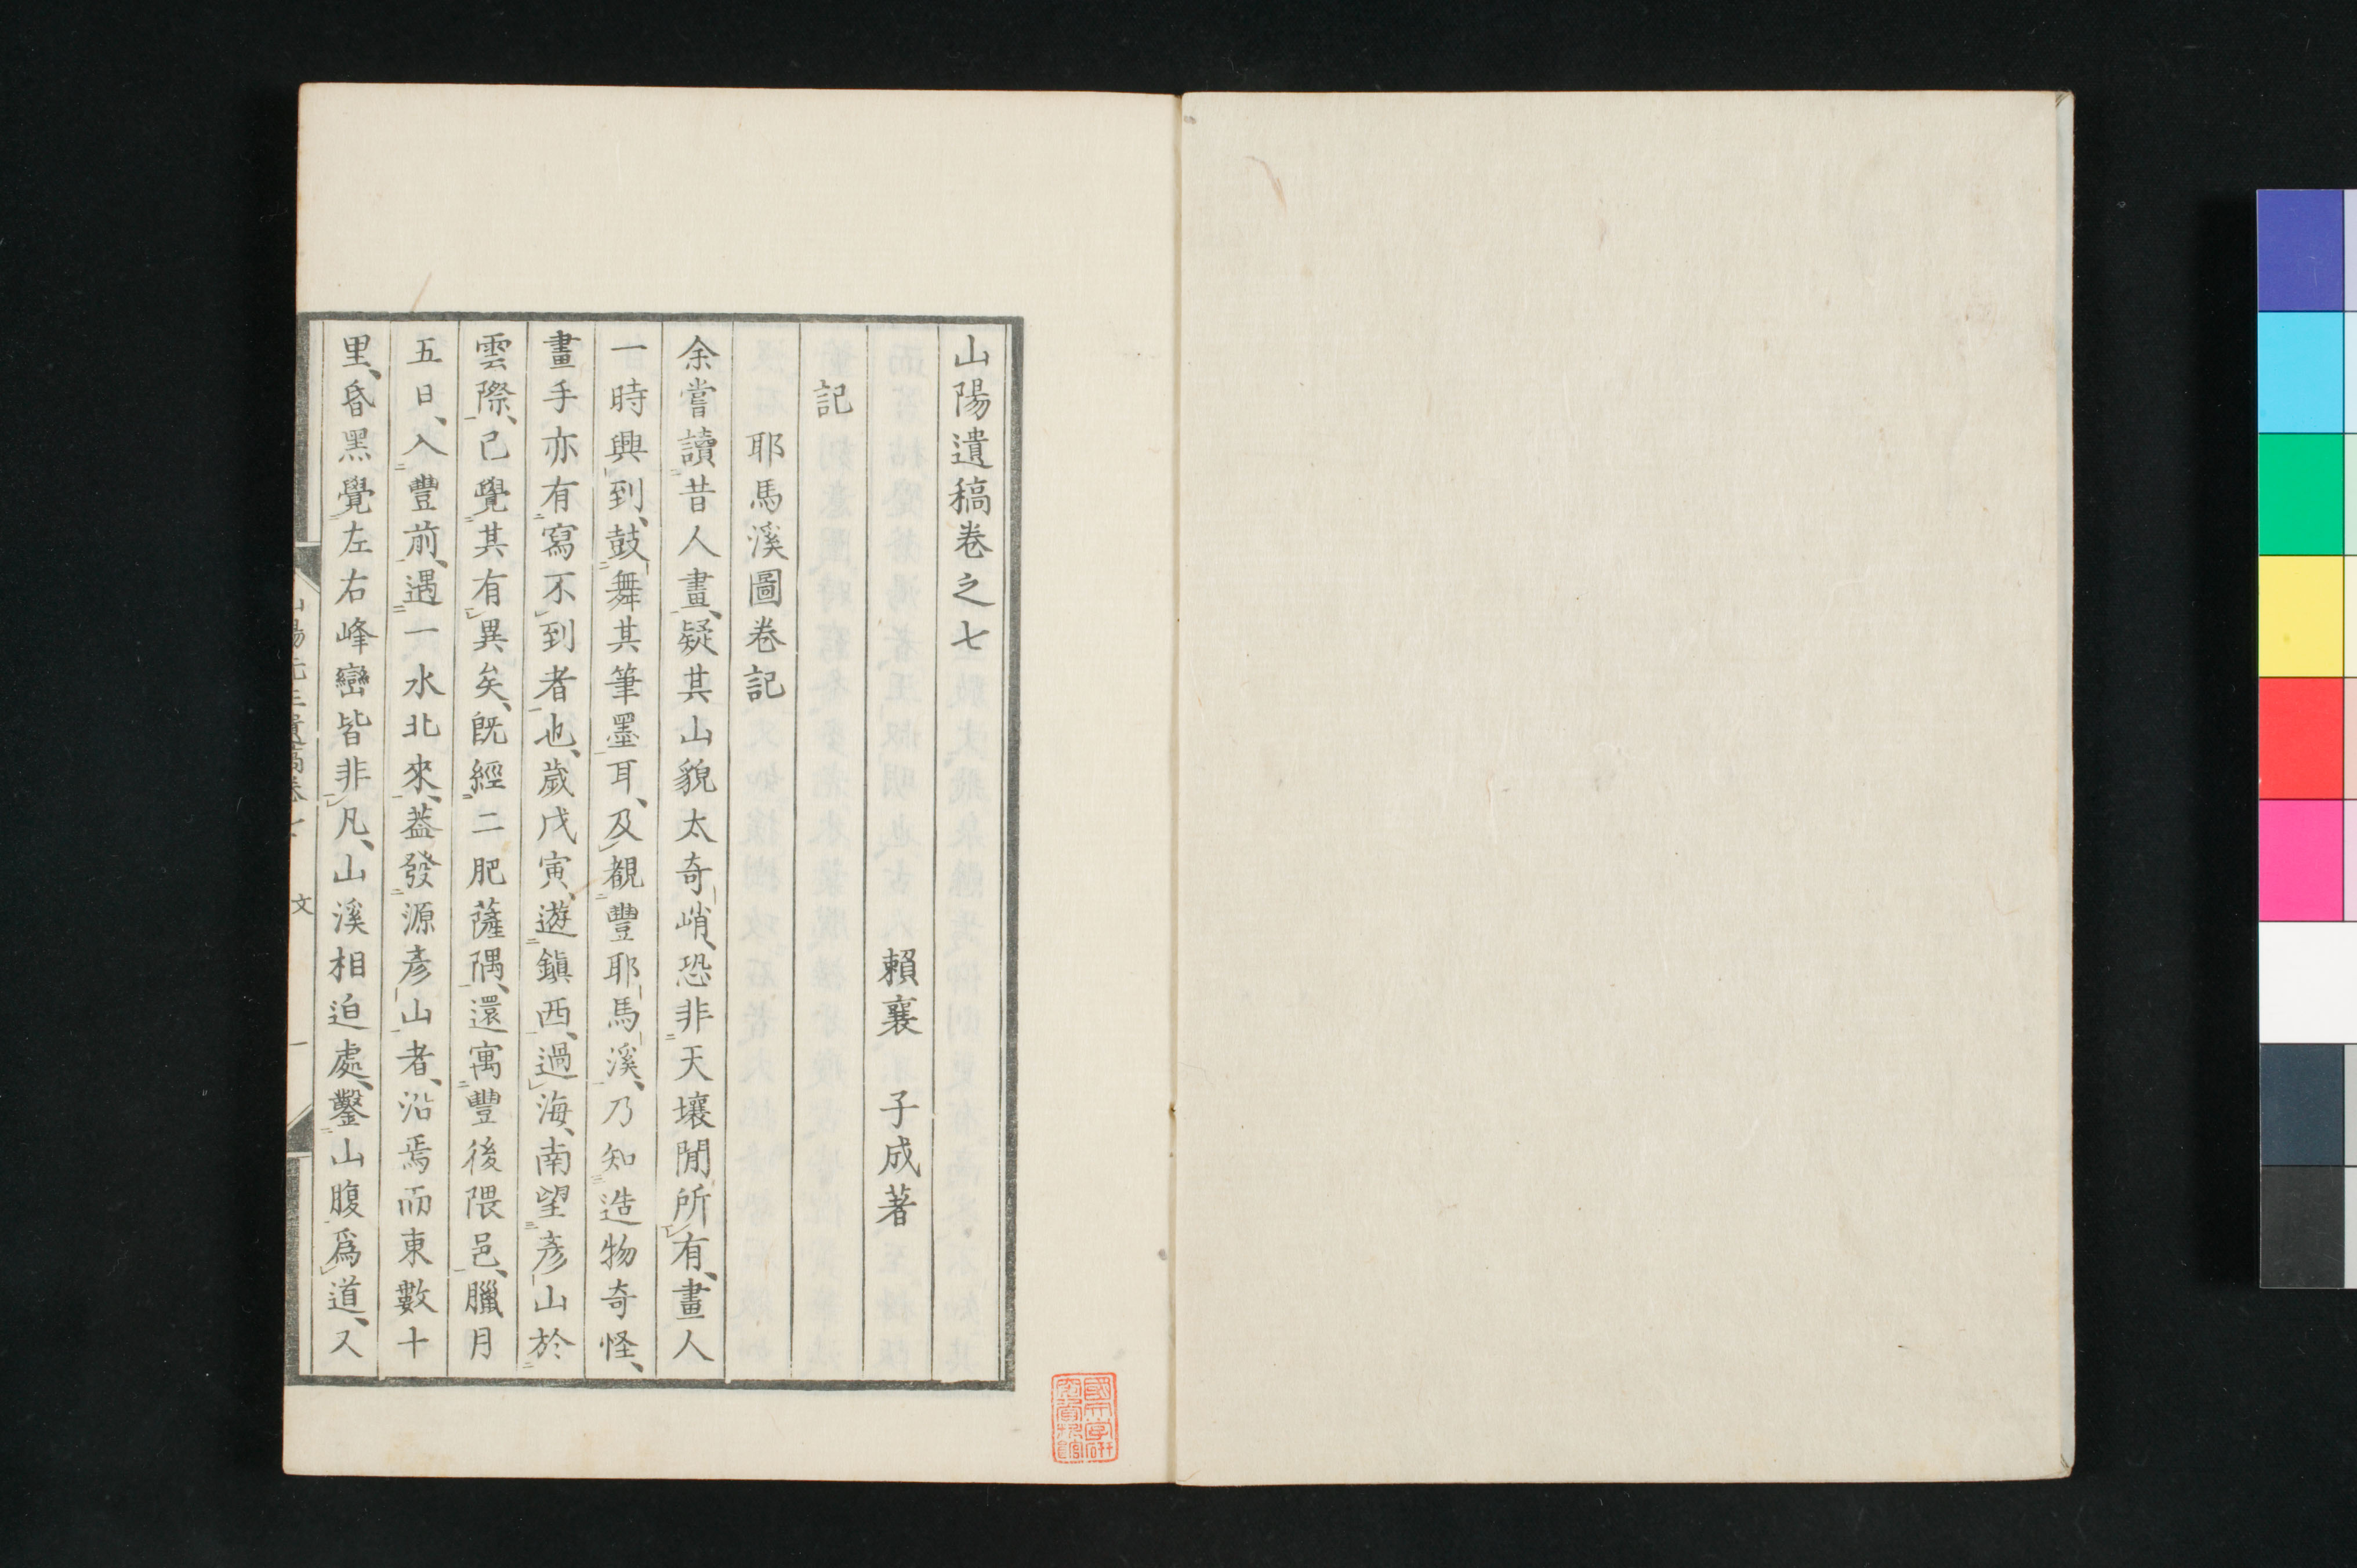 山陽遺稿卷之七
賴襄 子成著
記
耶馬溪圖卷記
余嘗讀昔人畫、疑其山貌太奇峭、恐非天壤間所有、畫人
一時興到、鼓舞其筆墨耳、及觀豐耶馬溪、乃知造物奇怪、
畫手亦有寫不到者也、歲戊寅、遊鎭西、過海、南望彥山於
雲際、已覺其有異矣、旣經二肥薩隅、還寓豐後隈邑、臘月
五日、入豐前、遇一水北來、蓋發源彥山者、沿焉而東數十
里、昏黑覺左右峰巒皆非凡、山溪相迫處、鑿山腹爲道、又
文
一